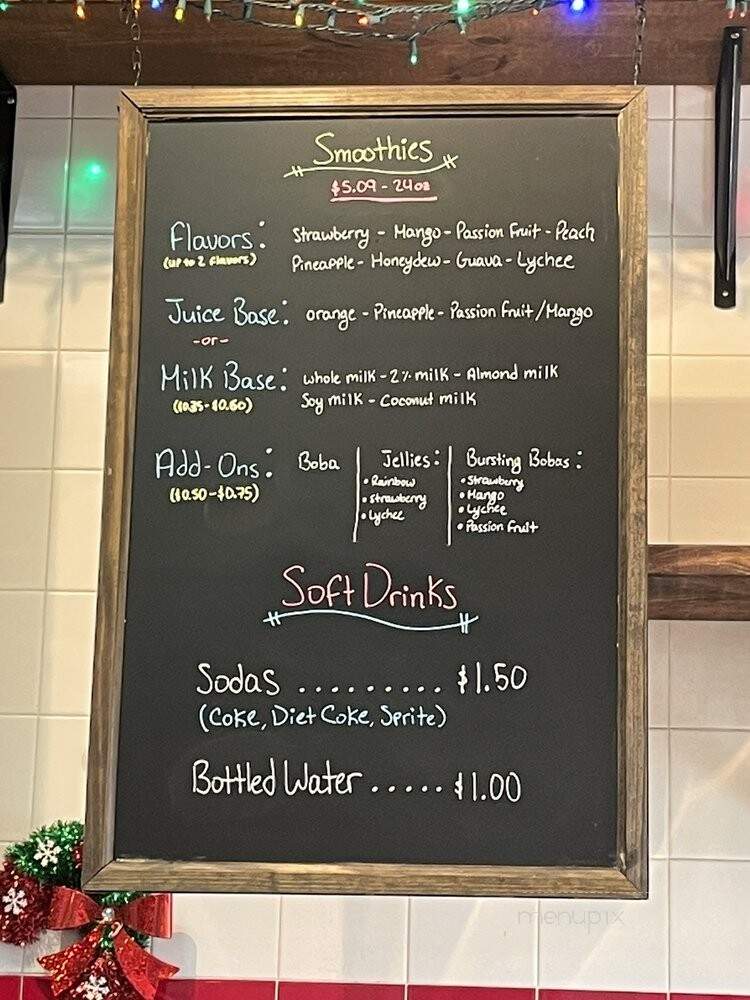 Smoothies
$5.09 - 24oz
Flavors: Strawberry - Mango - Passion Fruit - Peach
(up to 2 flavors) Pineapple - Honeydew - Guava - Lychee
Juice Base: orange - Pineapple - Passion Fruit/Mango
-or-
Milk Base: whole milk - 2% milk - Almond milk
($0.35-$0.60) Soy milk - Coconut milk
Add-Ons: Boba
($0.50-$0.75)
Jellies:
• Rainbow
• Strawberry
• Lychee
Bursting Bobas:
• Strawberry
• Mango
• Lychee
• Passion Fruit
Soft Drinks
Sodas ......... $1.50
(Coke, Diet Coke, Sprite)
Bottled Water ..... $1.00
menupix